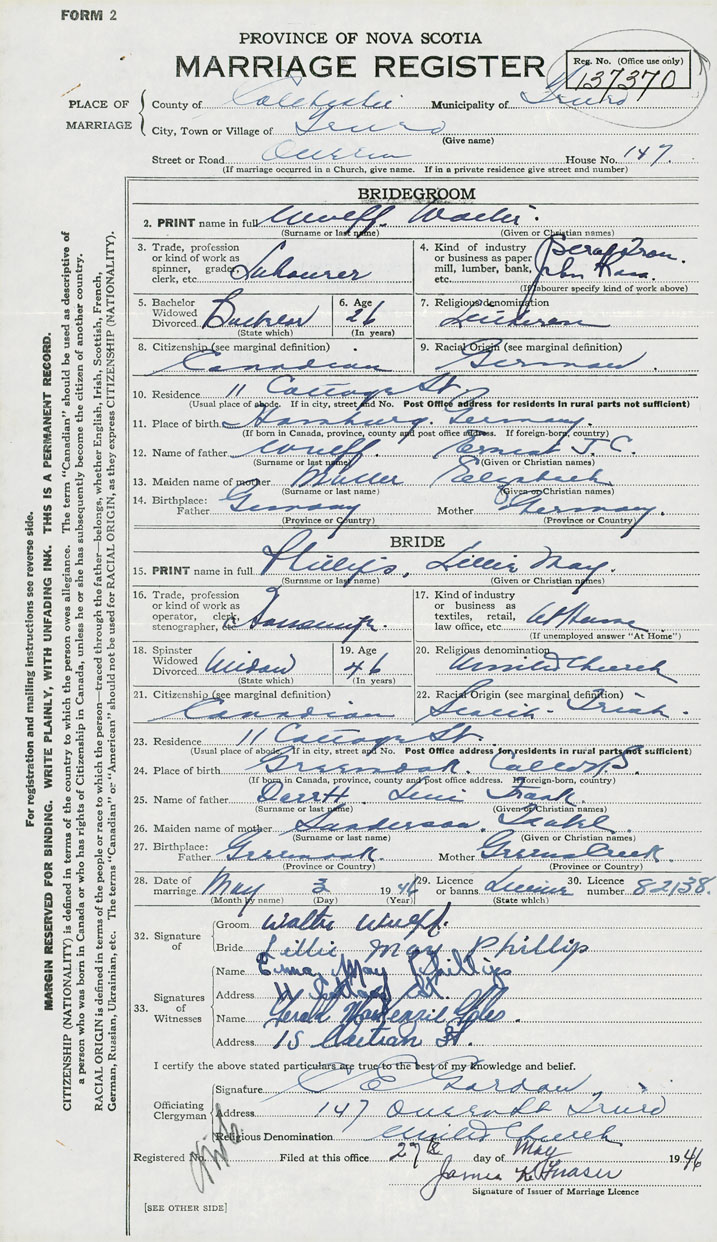 FORM 2
PROVINCE OF NOVA SCOTIA
MARRIAGE REGISTER
Reg. No. (Office use only)
137370
PLACE OF MARRIAGE
County of Colchester Municipality of Truro
City, Town or Village of Truro
(Give name)
Street or Road Queen House No. 147
(If marriage occurred in a Church, give name. If in a private residence give street and number)
BRIDEGROOM
2. PRINT name in full Wulff Walter.
(Surname or last name) (Given or Christian names)
3. Trade, profession or kind of work as spinner, grader, clerk, etc. Labourer
4. Kind of industry or business as paper mill, lumber, bank, etc. Scrap Iron. John
(If labourer specify kind of work above)
5. Bachelor Widowed Divorced Bachelor
(State which)
6. Age 26
(In years)
7. Religious denomination Lutheran
8. Citizenship (see marginal definition) Canadian
9. Racial Origin (see marginal definition) German.
10. Residence 11 Cottage St.
(Usual place of abode. If in city, street and No. Post Office address for residents in rural parts not sufficient)
11. Place of birth Hamburg. Germany.
(If born in Canada, province, county and post office address. If foreign-born, country)
12. Name of father Wulff Ernest J. C.
(Surname or last name) (Given or Christian names)
13. Maiden name of mother Muller Elizabeth
(Surname or last name) (Given or Christian names)
14. Birthplace: Father Germany Mother Germany.
(Province or Country) (Province or Country)
BRIDE
15. PRINT name in full Phillips, Lillie May.
(Surname or last name) (Given or Christian names)
16. Trade, profession or kind of work as operator, clerk, stenographer, etc.
17. Kind of industry or business as textiles, retail, law office, etc. At Home
(If unemployed answer "At Home")
18. Spinster Widowed Divorced Widow
(State which)
19. Age 46
(In years)
20. Religious denomination United Church
21. Citizenship (see marginal definition) Canadian
22. Racial Origin (see marginal definition) Scotch - Irish.
23. Residence 11 Cottage St.
(Usual place of abode. If in city, street and No. Post Office address for residents in rural parts not sufficient)
24. Place of birth Greenoak.
(If born in Canada, province, county and post office address. If foreign-born, country)
25. Name of father Frank
(Surname or last name) (Given or Christian names)
26. Maiden name of mother Sanderson Isabel.
(Surname or last name) (Given or Christian names)
27. Birthplace: Father Greenoak. Mother Greens Creek.
(Province or Country) (Province or Country)
28. Date of marriage May 3 1946
(Month by name) (Day) (Year)
29. Licence or banns License
(State which)
30. Licence number 82138.
32. Signature of
Groom Walter Wulff.
Bride Lillie May Phillip
33. Signatures of Witnesses
Name Erma May Phillips
Address 11 Cottage St.
Name Gerald MacKenzie
Address 15 St.
I certify the above stated particulars are true to the best of my knowledge and belief.
Officiating Clergyman
Signature C E Gordon
Address 147 Queen St Truro
Religious Denomination United Church
Registered No. Filed at this office 27th day of May 1946
James K Fraser
Signature of Issuer of Marriage Licence
[SEE OTHER SIDE]
For registration and mailing instructions see reverse side.
MARGIN RESERVED FOR BINDING. WRITE PLAINLY, WITH UNFADING INK. THIS IS A PERMANENT RECORD.
CITIZENSHIP (NATIONALITY) is defined in terms of the country to which the person owes allegiance. The term "Canadian" should be used as descriptive of
a person who was born in Canada or who has rights of Citizenship in Canada, unless he or she has subsequently become the citizen of another country.
RACIAL ORIGIN is defined in terms of the people or race to which the person—traced through the father—belongs, whether English, Irish, Scottish, French,
German, Russian, Ukrainian, etc. The terms "Canadian" or "American" should not be used for RACIAL ORIGIN, as they express CITIZENSHIP (NATIONALITY).